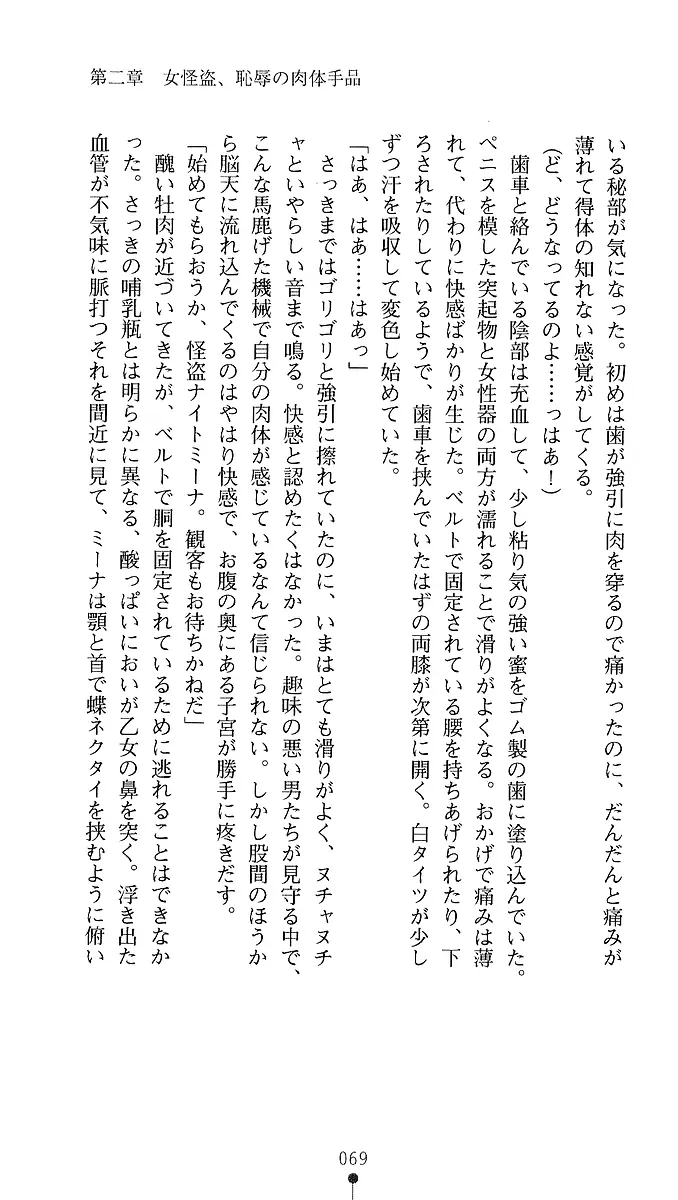 第二章　女怪盗、恥辱の肉体手品
いる秘部が気になった。初めは歯が強引に肉を穿るので痛かったのに、だんだんと痛みが
薄れて得体の知れない感覚がしてくる。
（ど、どうなってるのよ……っはぁ！）
　歯車と絡んでいる陰部は充血して、少し粘り気の強い蜜をゴム製の歯に塗り込んでいた。
ペニスを模した突起物と女性器の両方が濡れることで滑りがよくなる。おかげで痛みは薄
れて、代わりに快感ばかりが生じた。ベルトで固定されている腰を持ちあげられたり、下
ろされたりしているようで、歯車を挟んでいたはずの両膝が次第に開く。白タイツが少し
ずつ汗を吸収して変色し始めていた。
「はあ、はあ……はあっ」
　さっきまではゴリゴリと強引に擦れていたのに、いまはとても滑りがよく、ヌチャヌチ
ャといやらしい音まで鳴る。快感と認めたくはなかった。趣味の悪い男たちが見守る中で、
こんな馬鹿げた機械で自分の肉体が感じているなんて信じられない。しかし股間のほうか
ら脳天に流れ込んでくるのはやはり快感で、お腹の奥にある子宮が勝手に疼きだす。
「始めてもらおうか、怪盗ナイトミーナ。観客もお待ちかねだ」
　醜い牡肉が近づいてきたが、ベルトで胴を固定されているために逃れることはできなか
った。さっきの哺乳瓶とは明らかに異なる、酸っぱいにおいが乙女の鼻を突く。浮き出た
血管が不気味に脈打つそれを間近に見て、ミーナは顎と首で蝶ネクタイを挟むように俯い
069